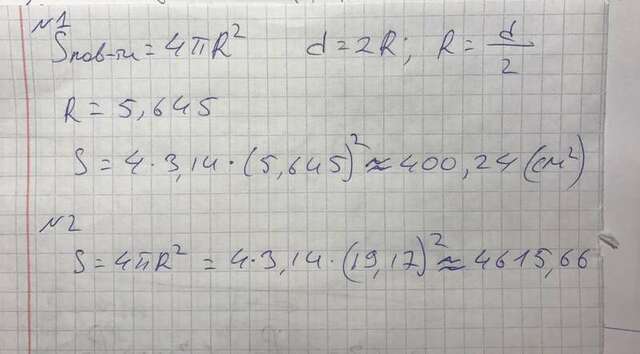 №1
Sпов-ти = 4πR² d = 2R; R = d/2
R = 5,645
S = 4·3,14·(5,645)² ≈ 400,24 (см²)
№2
S = 4πR² = 4·3,14·(19,17)² ≈ 4615,66